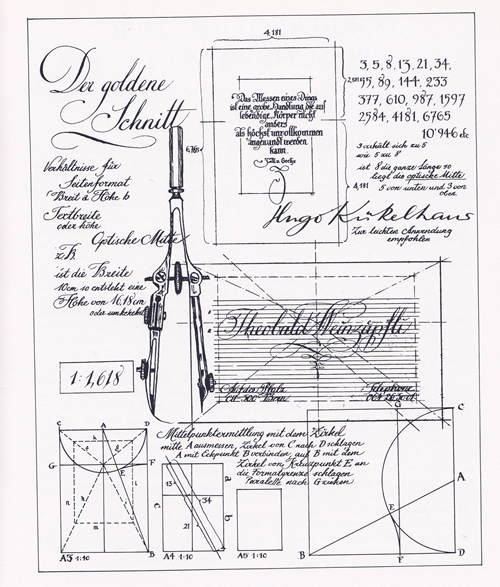 Der goldene
Schnitt
Verhältnisse für
Seitenformat
Breit a Höhe b
Textbreite
oder höhe
Optische Mitte
z.B.
ist die Breite
10cm so entsteht eine
Höhe von 16,18cm
oder umkehrt
1:1,618
6,765
4,181
Das Messen eines Dings
ist eine grobe Handlung, die auf
lebendige Körper nicht
anders
als höchst unvollkommen
angewandt werden
kann.
Goethe
2,584
4,181
3, 5, 8, 13, 21, 34,
55, 89, 144, 233
377, 610, 987, 1597
2584, 4181, 6765
10'946 etc
3 verhält sich zu 5
wie 5 zu 8
ist 8 die ganze Länge so
liegt die optische Mitte
5 von unten und 3 von
oben.
Hugo Kükelhaus
Zur leichten Anwendung
empfohlen
Theobald Weinzäpfli
Telephone
Mittelpunktermittlung mit dem Zirkel
mitte A ausmessen, Zirkel von C nach D schlagen
A mit Eckpunkt B verbinden, auf B mit dem
Zirkel von Kreuzpunkt E an
die Formatgrenze schlagen
Paralelle nach G ziehen
C A D
G E F
B
A3 1:10
13
34
21
a
b
c
A4 1:10
A5 1:10
G
C
A
E
B F D